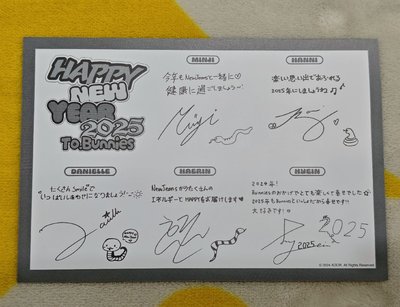 HAPPY
NEW
YEAR
2025
To.Bunnies
MINJI
今年もNewJeansと一緒に♡
健康に過ごしましょう~
HANNI
楽しい思い出であふれる
2025年にしましょうね♪
DANIELLE
たくさんSmileで
いっぱいしあわせになりましょう
HAERIN
NewJeansがりたくさんの
エネルギーとHAPPYをお届けします♡
HYEIN
2024年!
Bunniesのおかげでとても楽しくて幸せでした☆
2025年もBunniesといっしょだから幸せです!!
大好きです!♡
2025
© 2024 ADOR. All Rights Reserved.